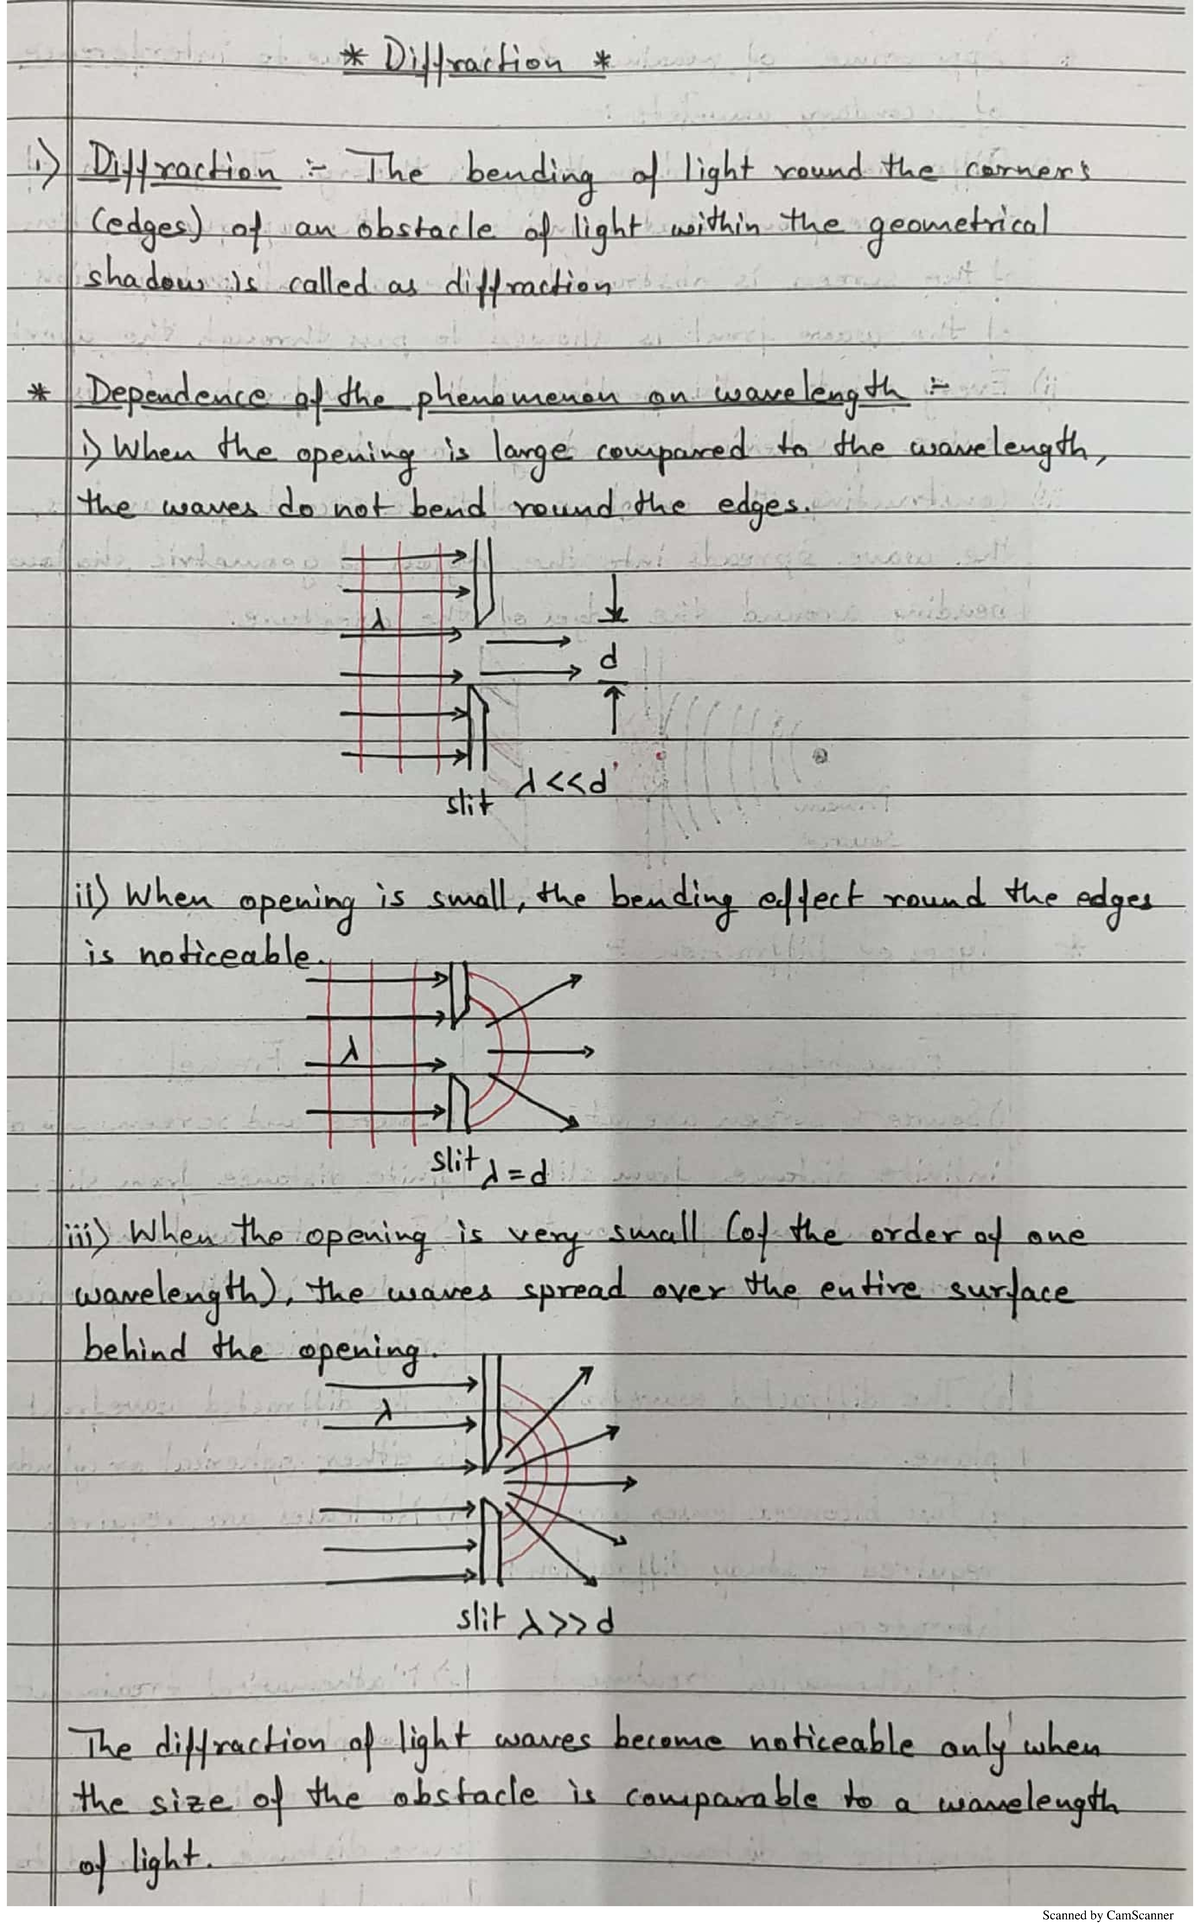 * Diffraction *
1.) Diffraction :- The bending of light round the corners
(edges) of an obstacle of light within the geometrical
shadow is called as diffraction
* Dependence of the phenomenon on wavelength :-
i) When the opening is large compared to the wavelength,
the waves do not bend round the edges.
λ
d
λ<<d
slit
ii) When opening is small, the bending effect round the edges
is noticeable.
λ
slit λ=d
iii) When the opening is very small (of the order of one
wavelength), the waves spread over the entire surface
behind the opening.
λ
slit λ>>d
The diffraction of light waves become noticeable only when
the size of the obstacle is comparable to a wavelength
of light.
Scanned by CamScanner